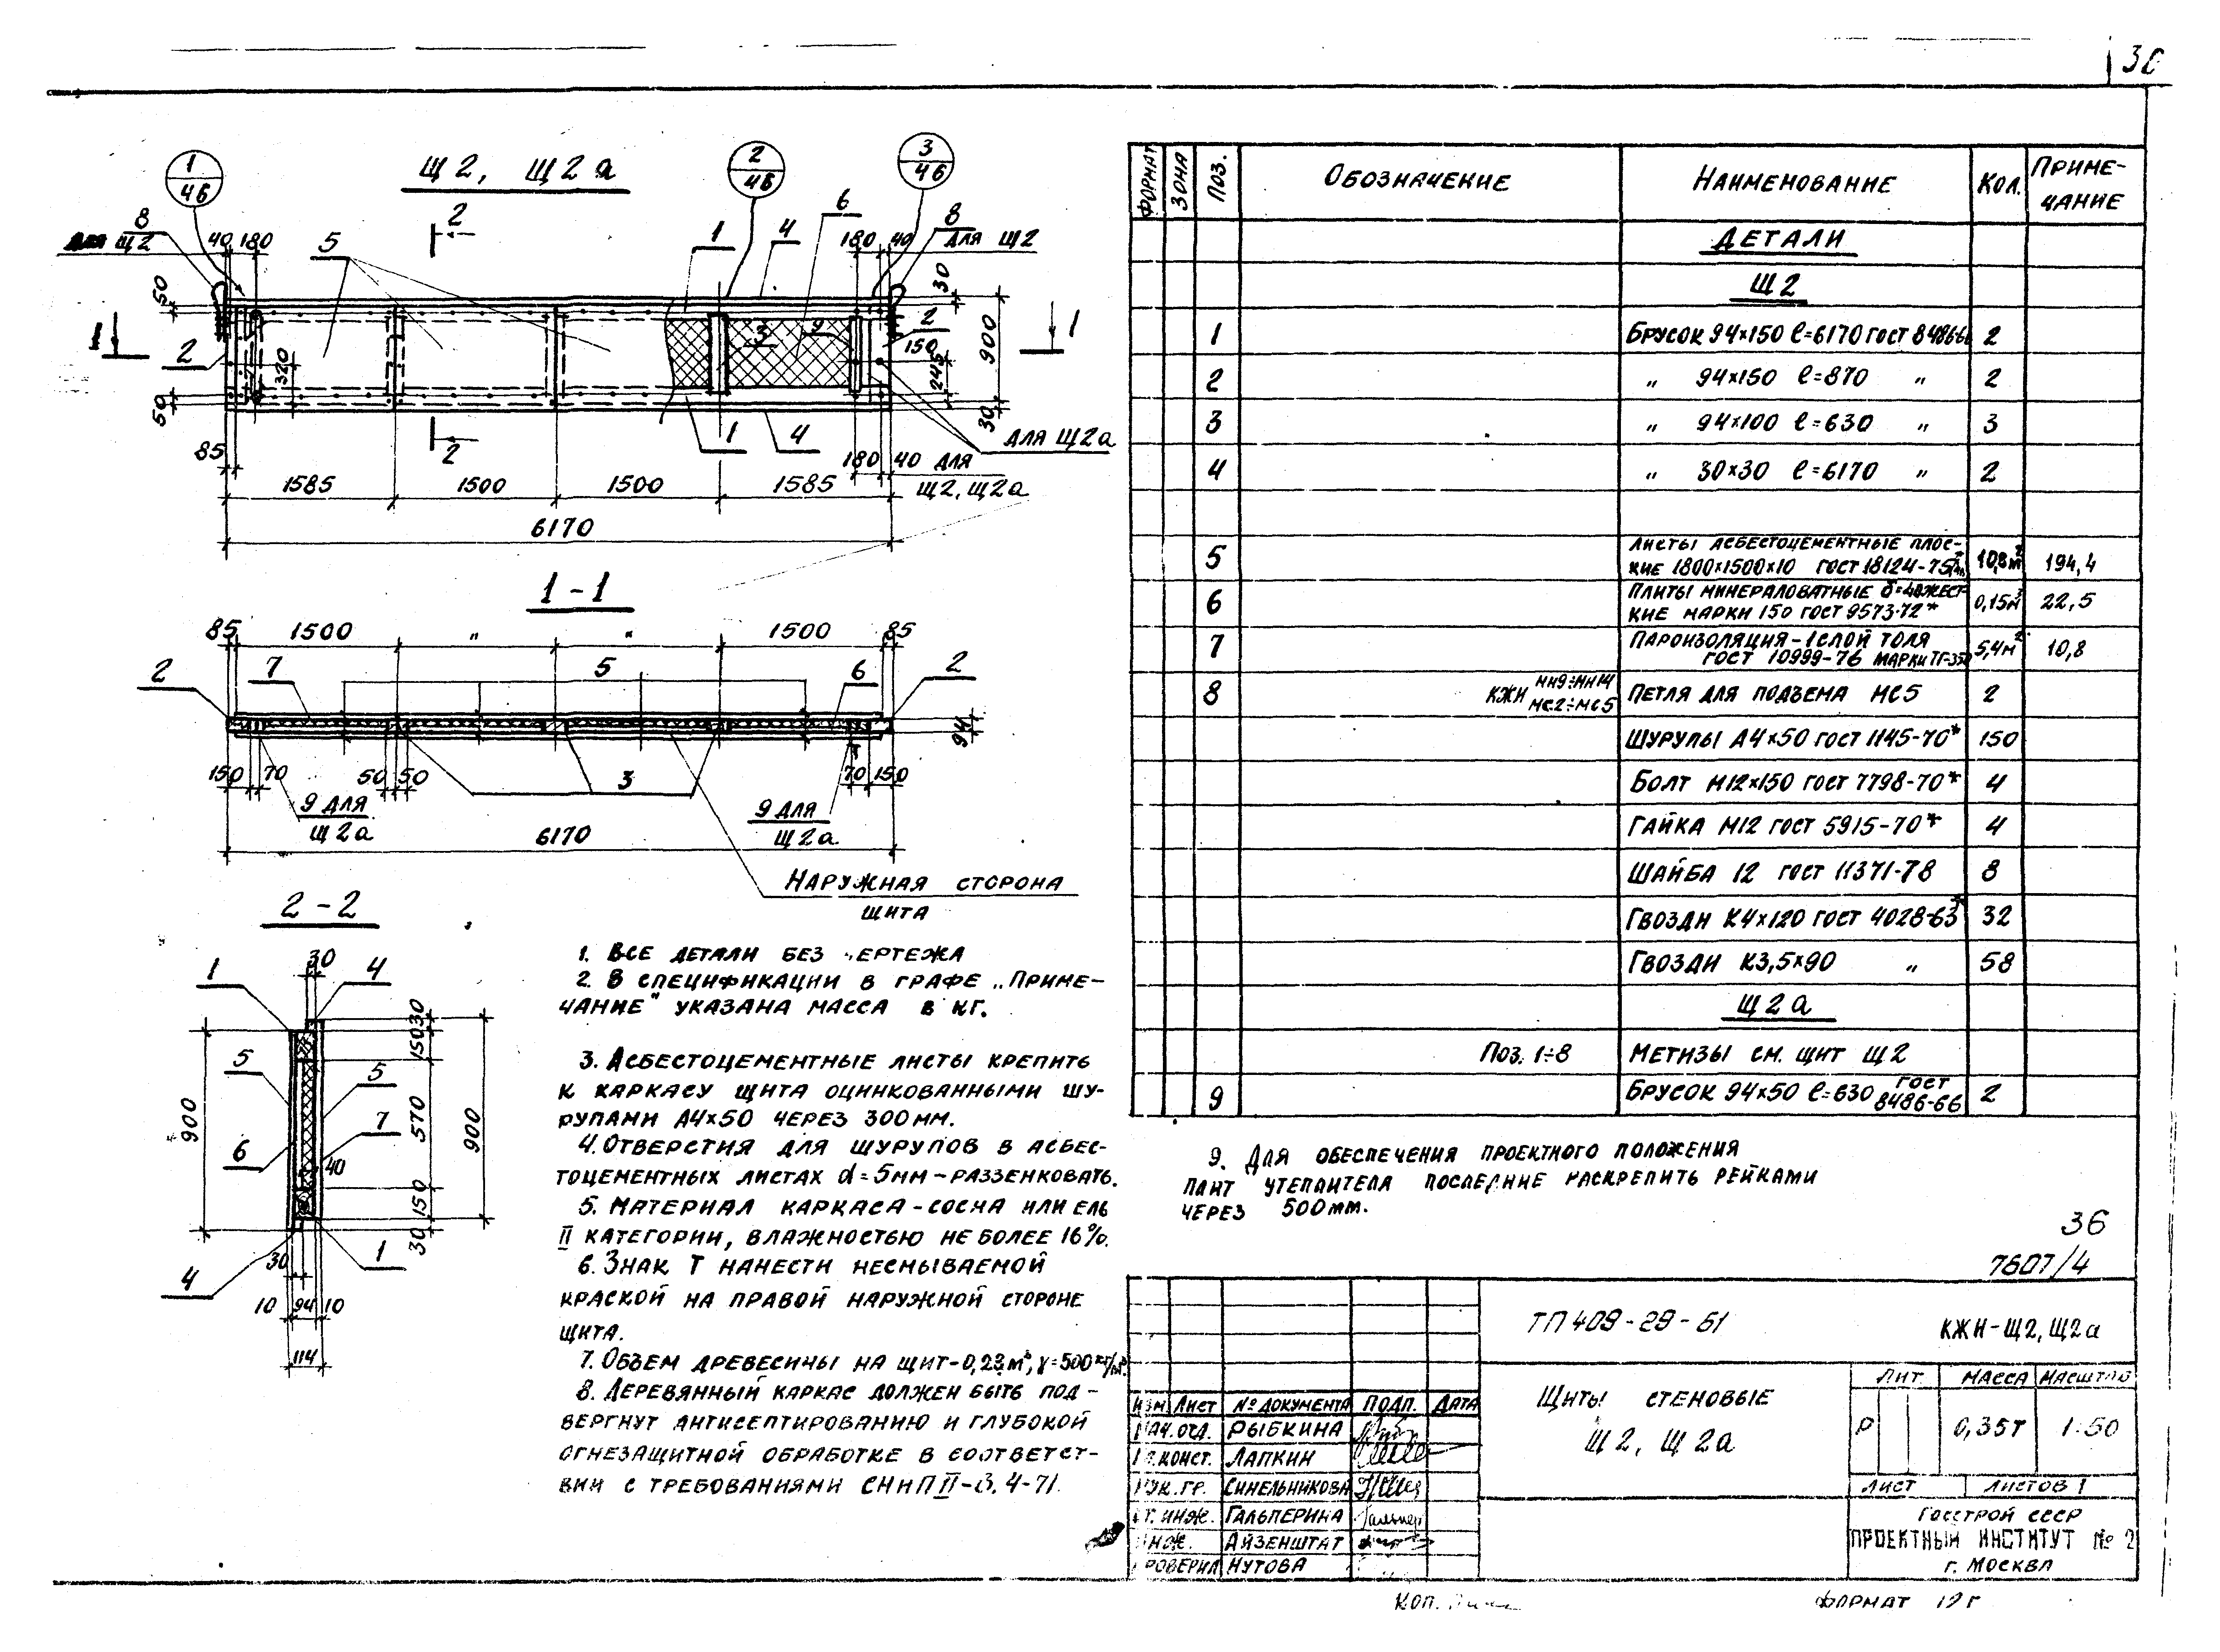 Щ2, Щ2а
1
46
2
46
3
46
8
для Щ2
40 180
5
2
1
4
6
180 40
8
для Щ2
50
30
900
1
1
2
320
3
9
2
150
245
50
30
85
2
1
4
для Щ2а
180 40 для
Щ2, Щ2а
1585
1500
1500
1585
6170
1-1
85
1500
"
"
1500
85
2
7
5
6
2
94
150 70
50 50
3
70 150
9 для
Щ2а
9 для
Щ2а
6170
Наружная сторона
щита
2-2
1
30
4
30
150
5
5
900
570
900
7
6
40
150
30
1
30
4
10 94 10
114
1. Все детали без чертежа
2. В спецификации в графе „Приме-
чание" указана масса в кг.
3. Асбестоцементные листы крепить
к каркасу щита оцинкованными шу-
рупами А4×50 через 300мм.
4. Отверстия для шурупов в асбес-
тоцементных листах d=5мм-раззенковать.
5. Материал каркаса-сосна или ель
II категории, влажностью не более 16%.
6. Знак Т нанести несмываемой
краской на правой наружной стороне
щита.
7. Объем древесины на щит-0,23м³, γ=500кг/м³.
8. Деревянный каркас должен быть под-
вергнут антисептированию и глубокой
огнезащитной обработке в соответст-
вии с требованиями СНиП II-В.4-71.
Формат Зона Поз. Обозначение Наименование Кол. Приме-
чание
Детали
Щ2
1 Брусок 94×150 ℓ=6170 ГОСТ 8486-66 2
2 „ 94×150 ℓ=870 „ 2
3 „ 94×100 ℓ=630 „ 3
4 „ 30×30 ℓ=6170 „ 2
5 Листы асбестоцементные плос-
кие 1800×1500×10 ГОСТ 18124-75 10,8м² 194,4
6 Плиты минераловатные δ=40жест-
кие марки 150 ГОСТ 9573-72* 0,15м³ 22,5
7 Пароизоляция-1слой толя
ГОСТ 10999-76 марки ТГ-350 5,4м² 10,8
8 КЖИ МН9÷МН14
МС2÷МС5 Петля для подъема МС5 2
Шурупы А4×50 ГОСТ 1145-70* 150
Болт М12×150 ГОСТ 7798-70* 4
Гайка М12 ГОСТ 5915-70* 4
Шайба 12 ГОСТ 11371-78 8
Гвозди К4×120 ГОСТ 4028-63* 32
Гвозди К3,5×90 „ 58
Щ2а
Поз. 1÷8 Метизы см. щит Щ2
9 Брусок 94×50 ℓ=630 ГОСТ
8486-66 2
9. Для обеспечения проектного положения
плит утеплителя последние раскрепить рейками
через 500мм.
36
7607/4
ТП 409-29-61
КЖИ-Щ2, Щ2а
Щиты стеновые
Щ2, Щ2а
Лит. Масса Масштаб
Р 0,35т 1:50
Лист Листов 1
Госстрой СССР
Проектный институт № 2
г. Москва
Изм Лист № документа Подп. Дата
Нач.отд. Рыбкина
Гл.конст. Лапкин
Рук.гр. Синельникова
Ст.инж. Гальперина
Инж. Айзенштат
Проверил Нутова
Коп.
Формат 12г